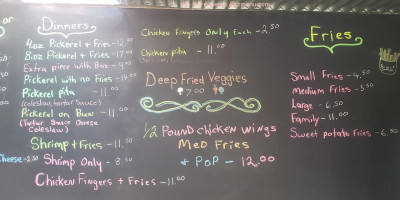 Dinners
4oz Pickerel + Fries - 12.00
8oz Pickerel + Fries - 17.00
Extra piece with Box - 9.00
Pickerel with no Fries - 14.00
Pickerel pita - 11.00
(coleslaw, tartar Sauce)
Pickerel on Bun - 11.00
(Tartar Sauce Cheese
Coleslaw)
Shrimp + Fries - 11.50
Cheese - 2.50
Shrimp Only - 8.50
Chicken Fingers + Fries - 11.00
Chicken Fingers Only Each - 2.50
Chicken pita - 11.00
Deep Fried Veggies
7.00
1/2 Pound chicken wings
Med Fries
+ Pop - 12.00
Fries
Small Fries - 4.50
medium Fries - 5.50
Large - 6.50
Family - 11.00
Sweet potato Fries - 6.50